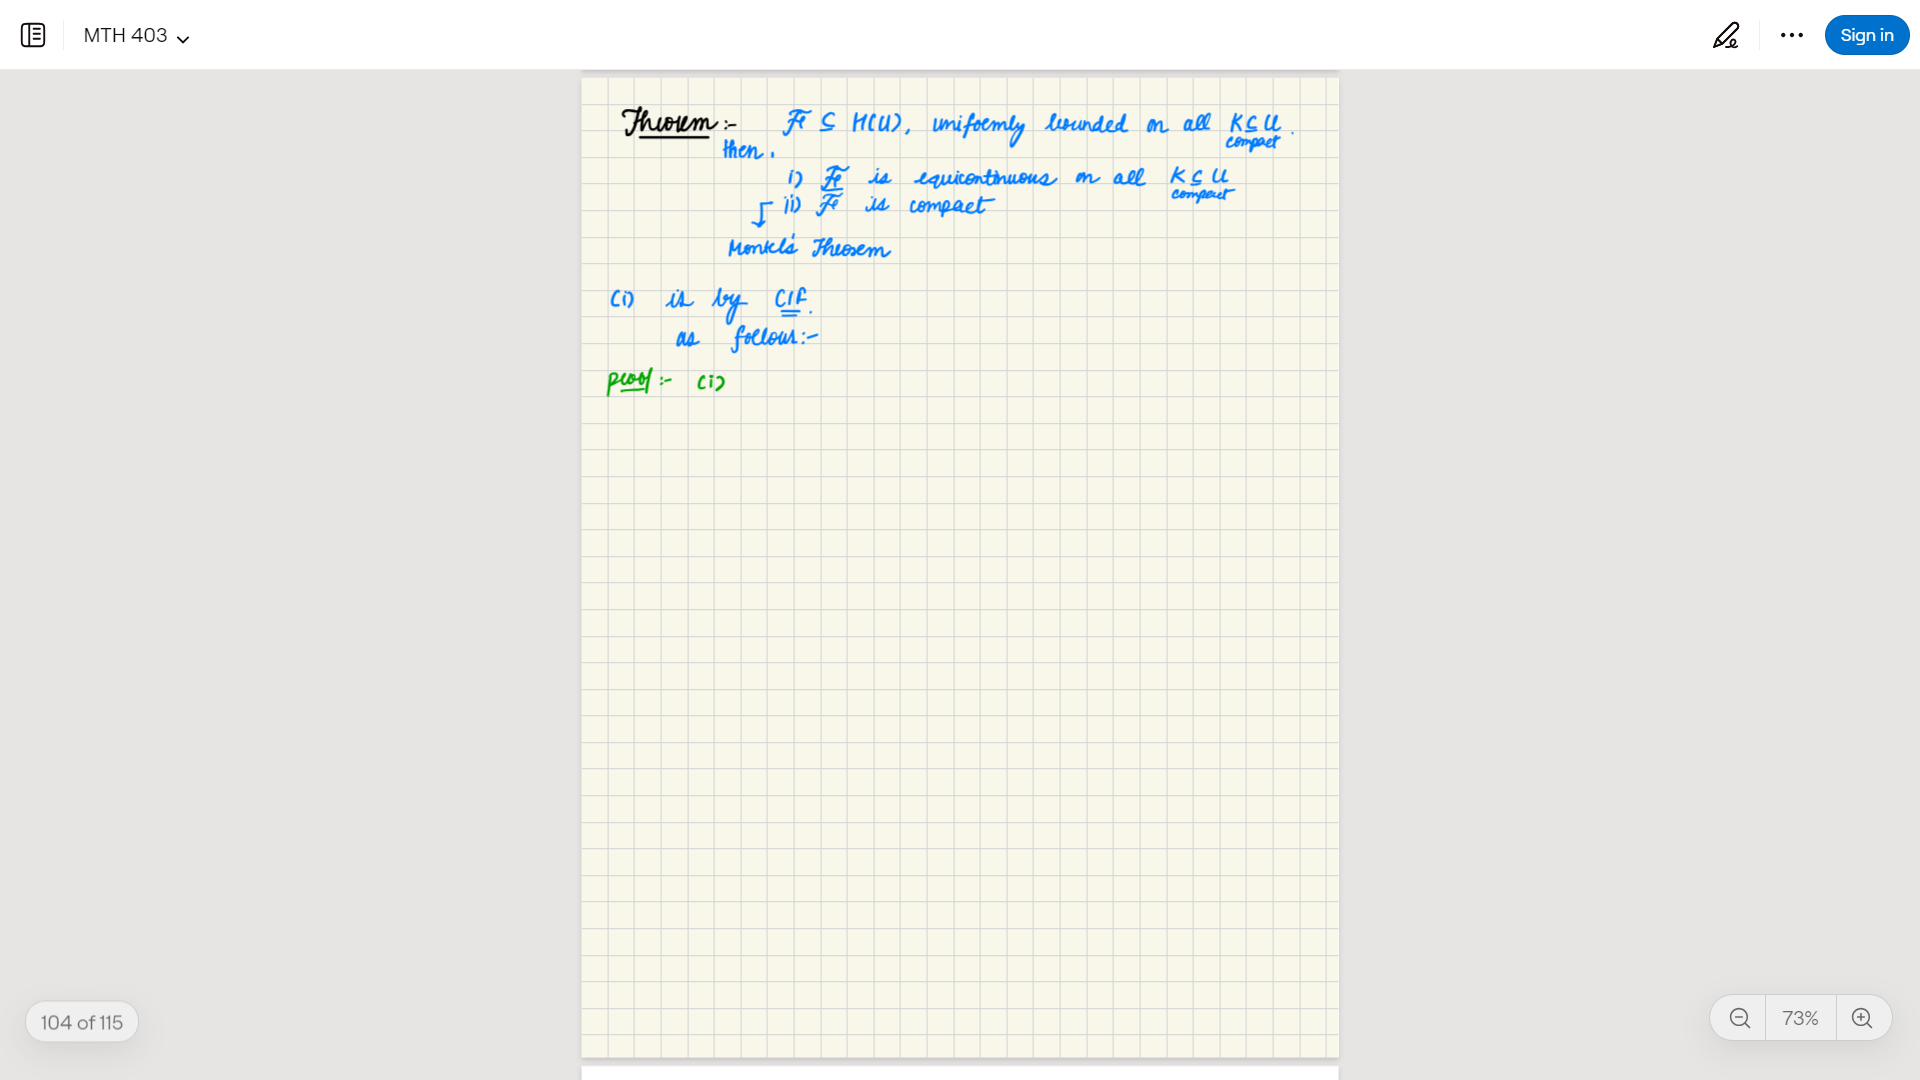 MTH 403
Sign in
Theorem :- F ⊆ H(U), uniformly bounded on all K ⊆ U.
compact
then,
i) F is equicontinuous on all K ⊆ U
compact
ii) F is compact
Montel's Theorem
(i) is by CIF.
as follows:-
proof :- (i)
104 of 115
73%